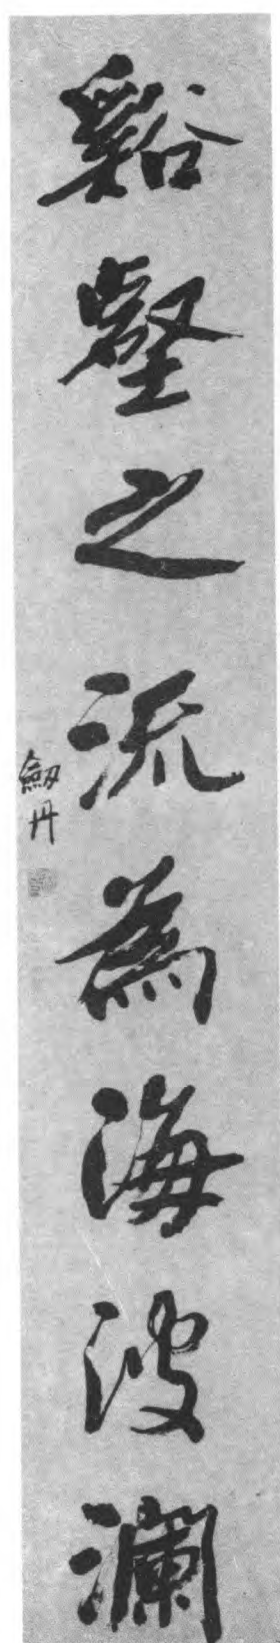 谿壑之流為海波瀾
劔丹